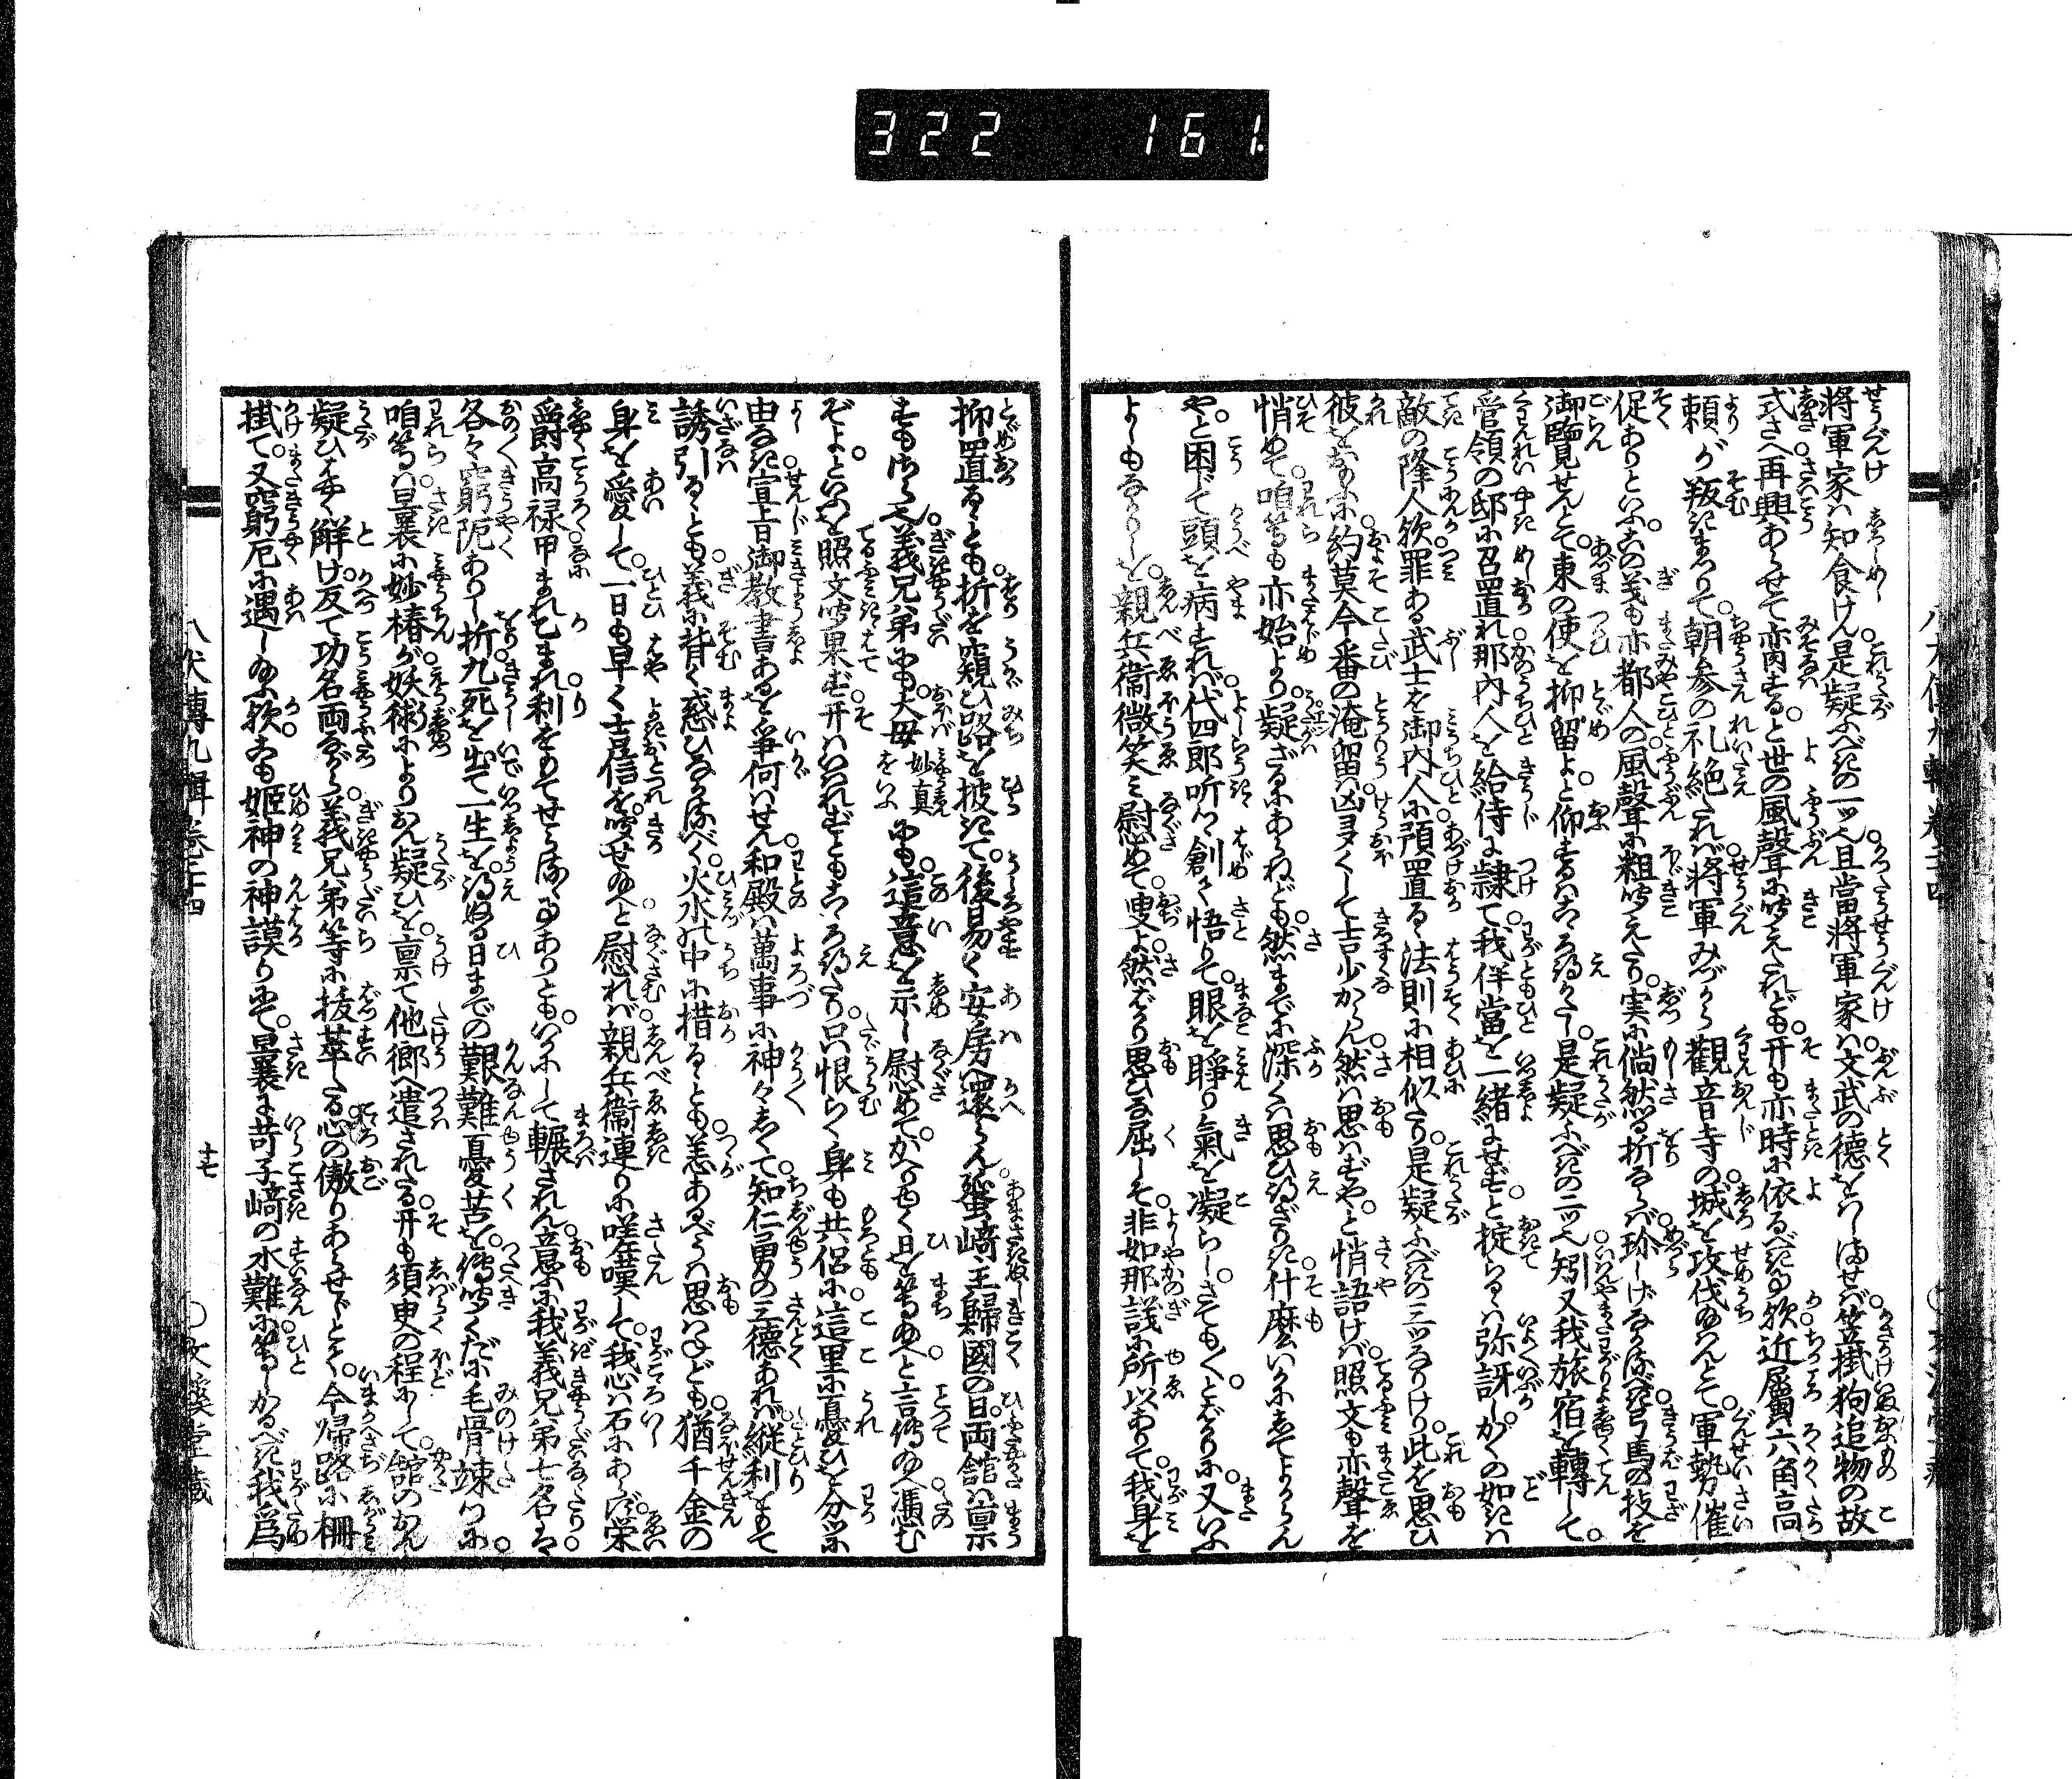 322 161
將軍家ハ知食けん是疑ふべきの一ッ也且當將軍家ハ文武の德をハしませバ笠掛狗追物の故
式さへ再興あらせて亦芮すると世の風聲に聞えたれども开も亦時に依るべきの歟近屬六角高
頼が叛きまつりて朝参の礼絶たれバ將軍みづから觀音寺の城を攻伐ゆんとて軍勢催
促ありといふこの義も亦都人の風聲に粗聞えたり実に倘然る折ならバ珍しげなかるべき弓馬の技を
御覽せんとて東の使を抑留よと仰するハこゝろ得がたし是疑ふべきの二ッ也矧又我旅宿を轉して
管領の邸に召置れ那内人を給侍に隷て我伴當を一緒にせずと掟らるゝハ弥訝しかくの如きハ
敵の降人歟罪ある武士を御内人に預置るゝ法則に相似たり是疑ふべきの三ッなりけり此を思ひ
彼をおもふに約莫今番の淹留ハ凶多くして吉少からん然ハ思ハずやと悄語けバ照文も亦聲を
悄めて咱等も亦始より疑ざるにあらねども然までに深くハ思ひ得ざりき什麼いかにしてよからん
やと困じて頭を病すれバ代四郎听つゝ創て悟りて眼を睜り氣を凝らしさても〳〵とばかりに又いふ
よしもなかりしを親兵衛微笑み慰めて叟よ然ばかり思ひな屈しそ非如那議に所以ありて我身を
抑置るゝとも折を窺ひ路を披きて後易く安房へ還らん蜑崎主歸國の日両舘ハ稟
すもさら也義兄弟にも大母妙真をいふにも這意を示し慰めてかへりゆく日を等ゆへと言傳ゆへ憑む
ぞよといふを照文聞果ず开ハいハれずともこゝろ得たり只恨らくハ身も共侶に這里に憂ひを分に
由なき宣旨御教書あるを爭何ハせん和殿ハ萬事に神々しくて知仁勇の三德あれバ縱利をもて
誘引るゝとも義に背く惑ひなかるべく火水の中に措るゝとも恙あるべうハ思ハねども猶千金の
身を愛して一日も早く吉信を聞せゆへと慰れバ親兵衛連りに嗟嘆して我心ハ石にあらず栄
爵高禄甲まれ乙まれ利をもてせらるゝ事ありともいかにして輾されん意ふに我義兄弟七名ハ
各々窮阨ありし折九死を出て一生を得ぬる日までの艱難憂苦を傳聞くだに毛骨竦つに
咱等ハ曩に妙椿が妖術によりおん疑ひを稟て他郷へ遣されたる开も須臾の程にして舘のおん
疑ひ全く觧け反て功名両ながら義兄弟等に拔萃たる心の傲りあらせじとて今歸路に柵
掛て又窮厄に遇しゆふ歟こも姫神の神謀りにて曩に苛子﨑の水難に等しかるべき我爲
八犬傳九輯巻二十四
十七
文溪堂藏